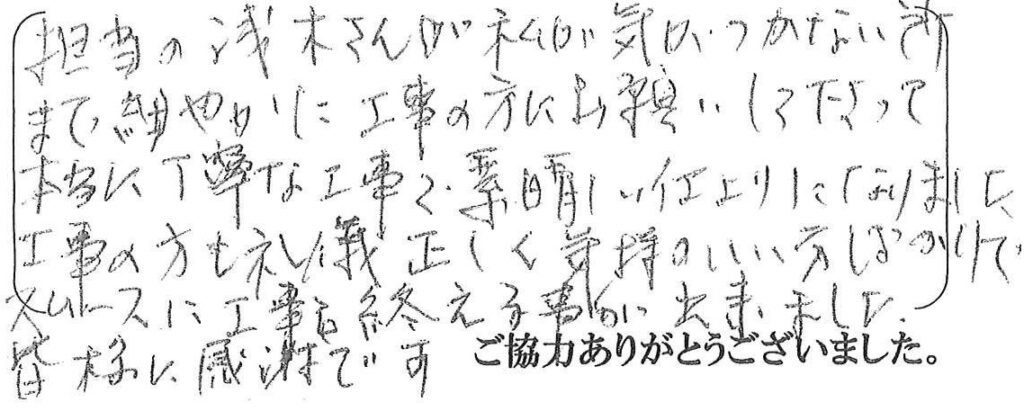 担当の浅木さんが私が気のつかない所
まで細やかに工事の方にお願いして下さって
本当に丁寧な工事で素晴しい仕上りになりました
工事の方も礼儀正しく気持のいい方ばかりで
スムースに工事も終える事が出来ました
皆様に感謝です
ご協力ありがとうございました。